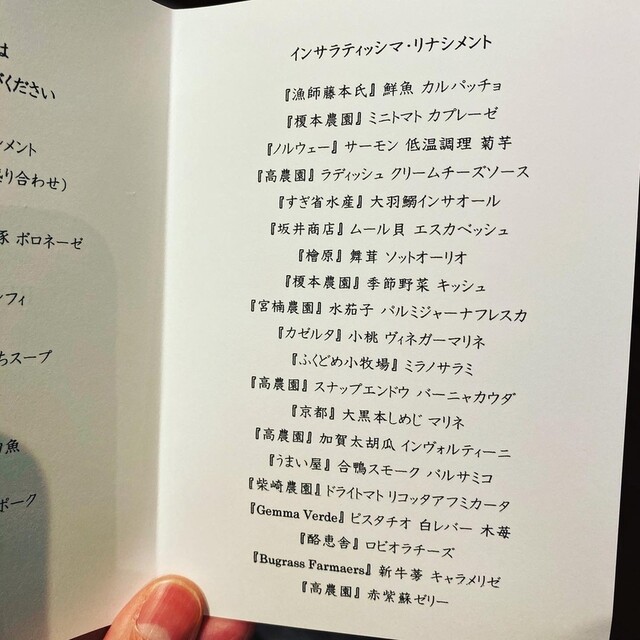 は
ください
ンメント
り合わせ）
豚 ボロネーゼ
ンフィ
ちスープ
魚
ポーク
インサラティッシマ・リナシメント
『漁師藤本氏』鮮魚 カルパッチョ
『榎本農園』ミニトマト カプレーゼ
『ノルウェー』サーモン 低温調理 菊芋
『高農園』ラディッシュ クリームチーズソース
『すぎ省水産』大羽鰯インサオール
『坂井商店』ムール貝 エスカベッシュ
『檜原』舞茸 ソットオーリオ
『榎本農園』季節野菜 キッシュ
『宮楠農園』水茄子 パルミジャーナフレスカ
『カゼルタ』小桃 ヴィネガーマリネ
『ふくどめ小牧場』ミラノサラミ
『高農園』スナップエンドウ バーニャカウダ
『京都』大黒本しめじ マリネ
『高農園』加賀太胡瓜 インヴォルティーニ
『うまい屋』合鴨スモーク バルサミコ
『柴崎農園』ドライトマト リコッタアフミカータ
『Gemma Verde』ピスタチオ 白レバー 木苺
『酪恵舎』ロビオラチーズ
『Bugrass Farmaers』新牛蒡 キャラメリゼ
『高農園』赤紫蘇ゼリー